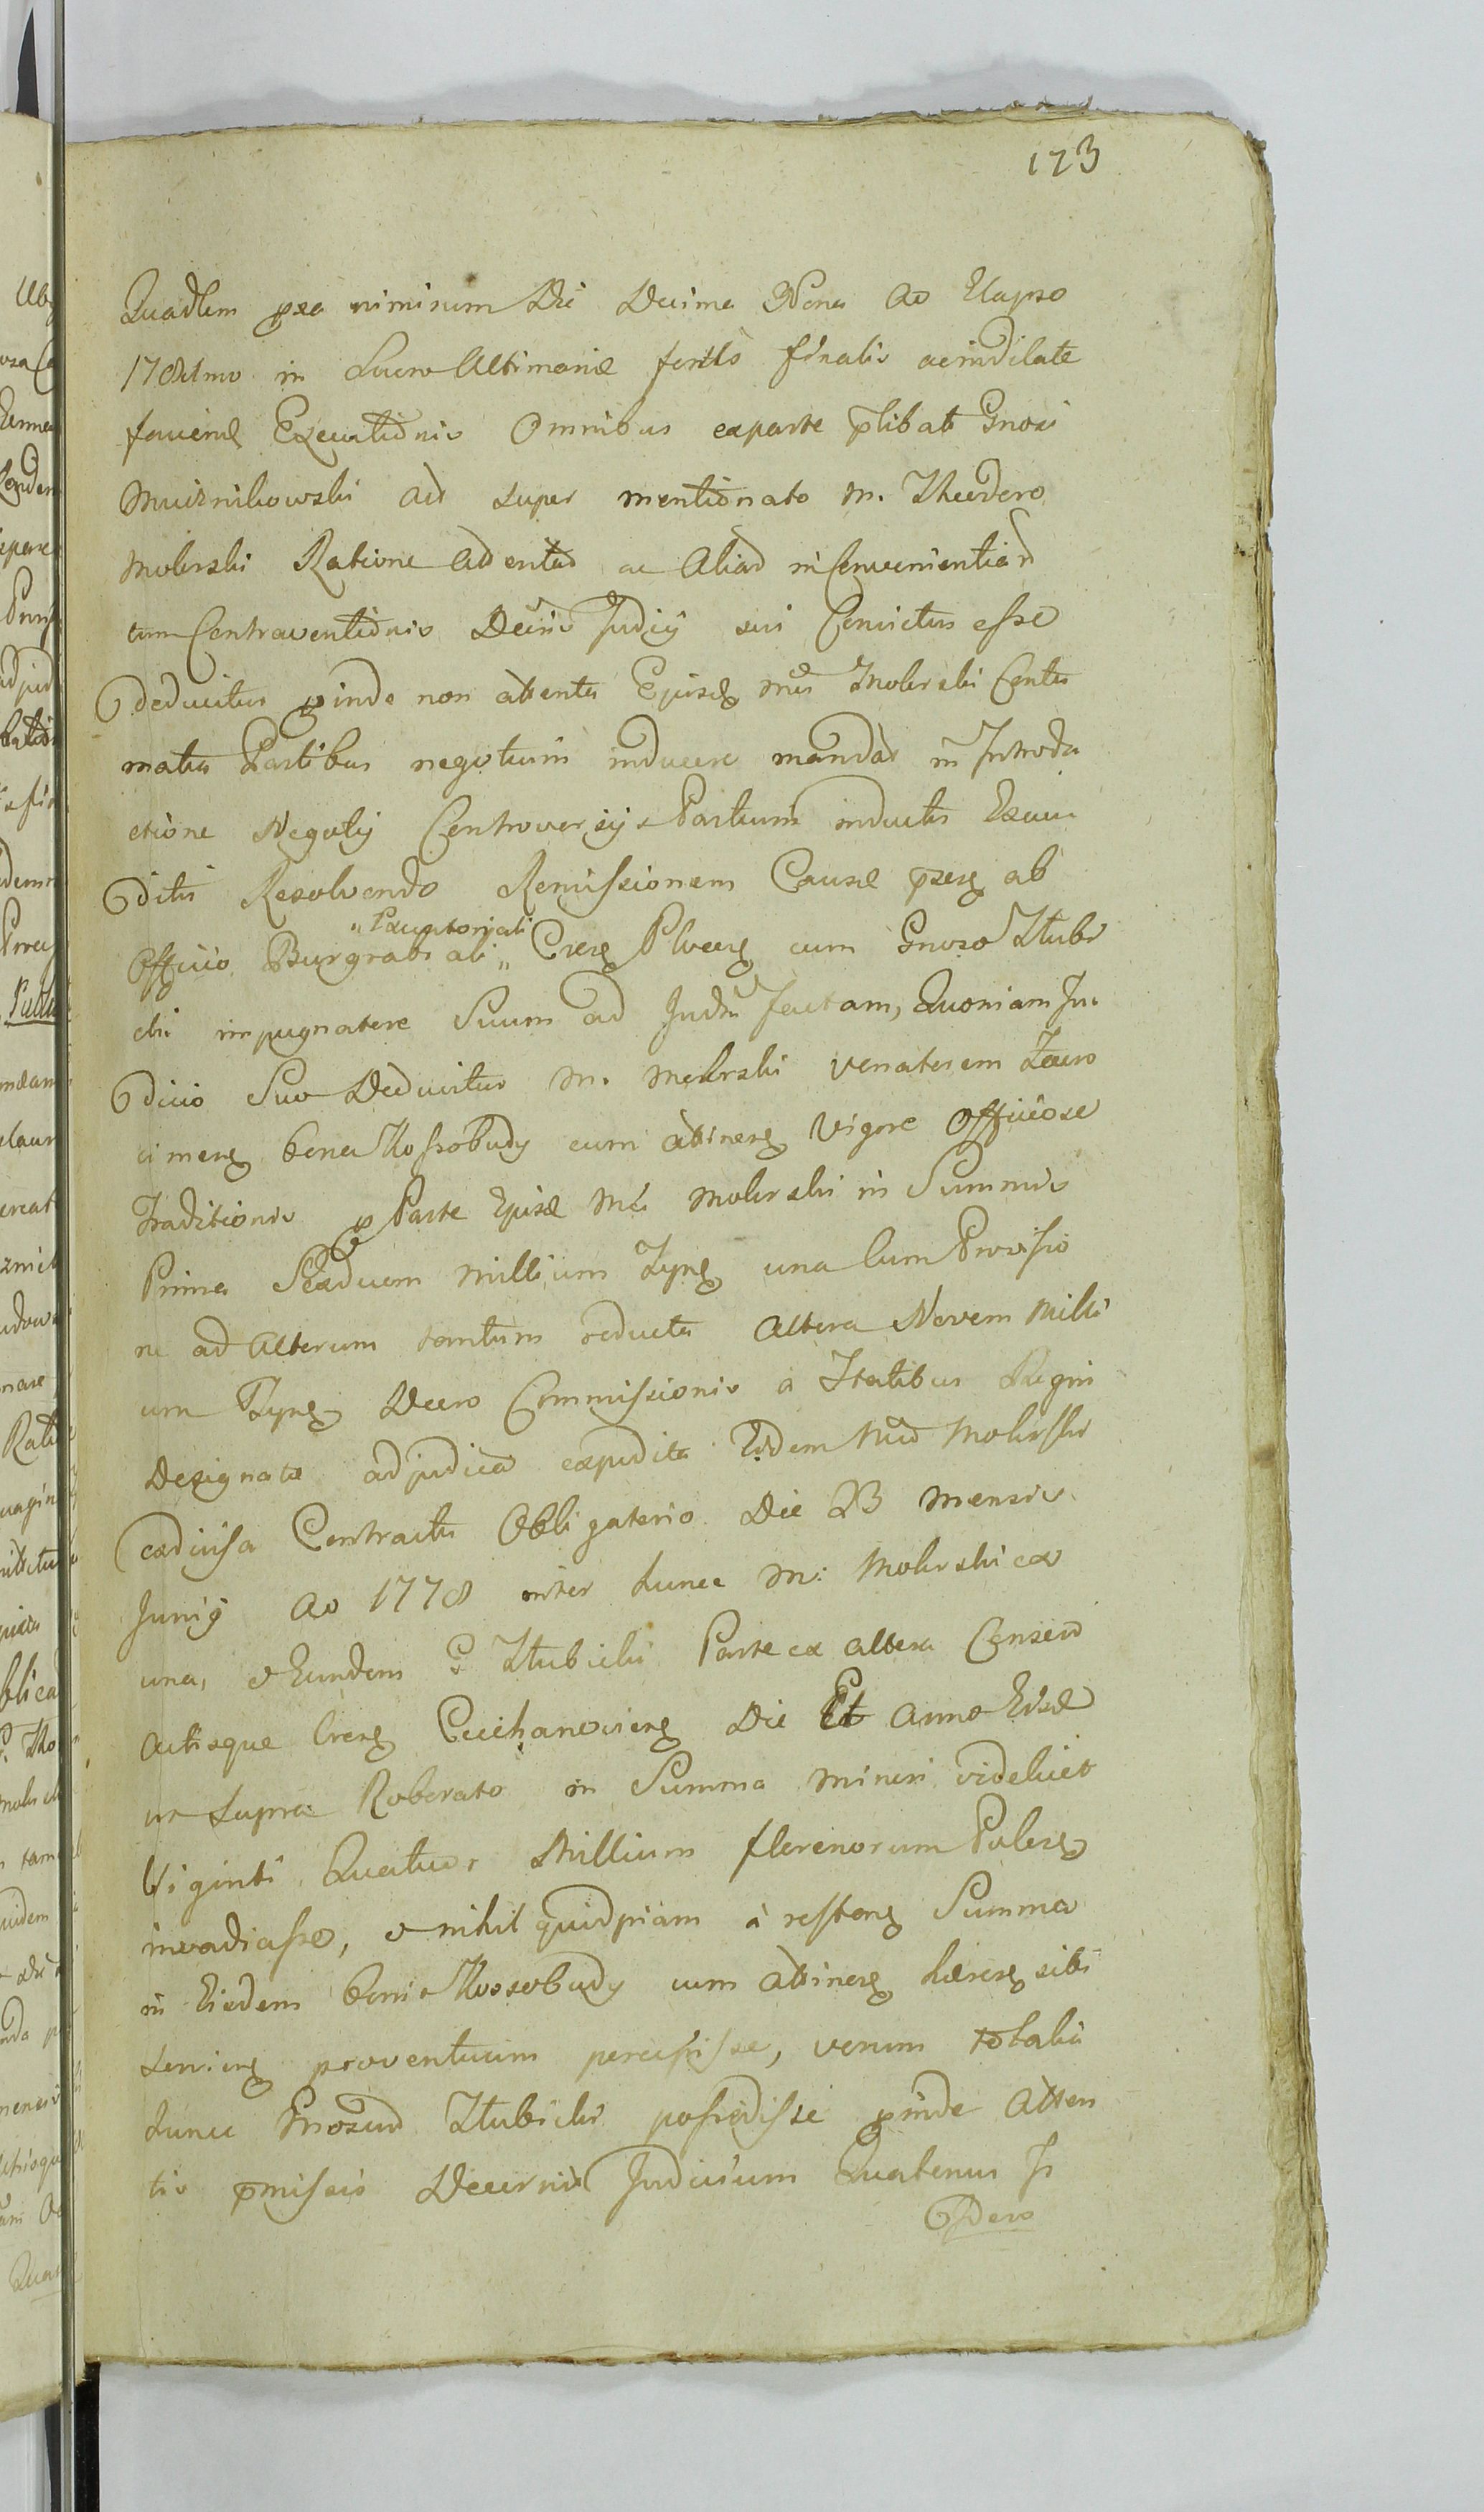 173
Quadtum pro nimirum Die Decima Nona Ao Elapso
1781mo in Lucro Ultimariæ finalis acindilate
Executionis Omnibus exparte plibat Gnosi
Mniznikowski ad super mentionato M. Theodoro
Mokrski Ratione ac Aliad inconvenientiad
tum Contraventionis Judicÿ sui Convictus esse
deducitur pinde non attenta Ejusq Mei Mokrski Contu
matia Partibus negotium inducere mandat in Introdu
ctione Negotÿ Controversÿ Partium inductis Exau
ditis Resolvendo Remissionem Causæ pserq ab
Officio Burgrab ali „ Crerq Plocerq cum Gnoso Ztubi
„ Exceptoriali
cki impugnatore Suum ad Judm factam, Quoniam Ju
dicio Suo Deducitur M. Mokrski venatorem Zawo
cimerq bona Kossobudy cum attinerq Vigore Officiosæ
Traditionis p Parte Ejusd Mei Mokrski in Summis
Prima Sexdecem Millium Tynq una cum Provisio
ne ad Alterum tantum reducta Altera Novem Milli
um Tynq Decro Commissionis à Statibus Regni
Designatæ adjudica expedita Eidem Mokrski
exdivisa Contractu Obligatorio Die 23 mensis
Junÿ Ao 1778 inter hunc M: Mokrski ex
una, & Eundem G Ztubicki Parte ex altera
Actisque Crerq Ciechanoviens Die Et Anno Eisd
ut Supra Roborato in Summa minori videlicet
Viginti Quatuor Millium florenorum Polerq
invadiasse, & nihil quidpiam à restanq Summa
in Eisdem bonis Kossobudy cum attinerq hærerq sibi
servienq proventuum percepisse, verum totalia
hunc Gnosum Ztubicki possedisse pinde Atten
tis pmissis Decernit Judicium Quatenus I
dem